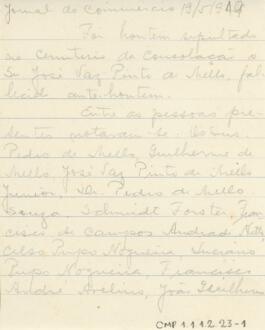 Jornal do Commercio 19/5/919
Foi hontem sepultado
no Cemiterio da Consolação o
Sr José Vaz Pinto de Mello, fal-
lecido ante-hontem.
Entre as pessoas pre-
sentes notavam-se
Pedro de Mello, Guilherme de
Mello, José Vaz Pinto de Mello
Junior, Pedro de Mello
Souza, Schmidt, Forster, Fran-
cisco de Campos Andrade
Celso Pupo Nogueira, Luciano
Pupo Nogueira, Francisco
André Avelino, João Guilherme
CMP 1.1.1.2.23-1